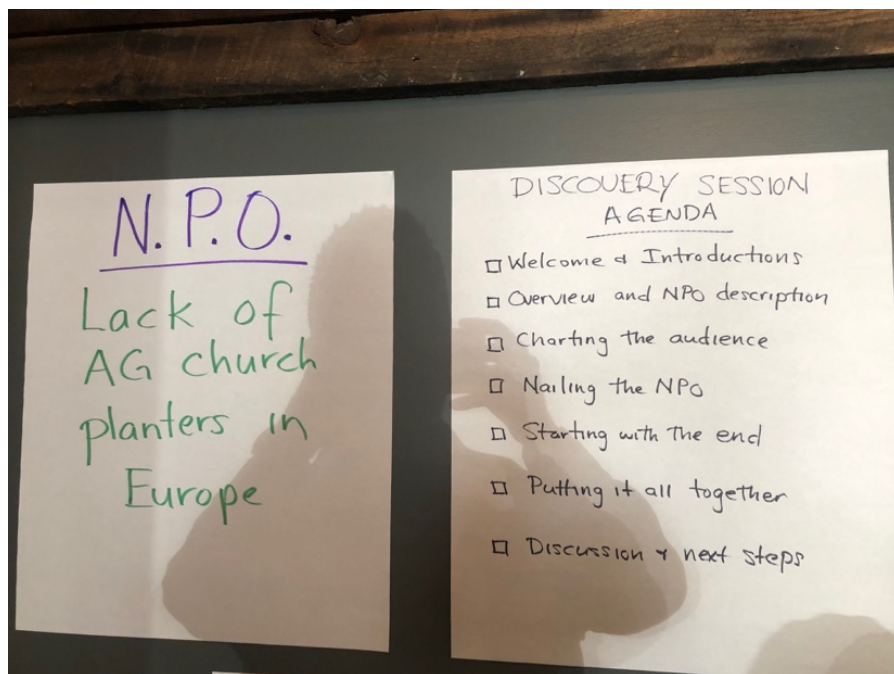 N.P.O.
Lack of
AG church
planters in
Europe
DISCOVERY SESSION
AGENDA
☐ Welcome & Introductions
☐ Overview and NPO description
☐ Charting the audience
☐ Nailing the NPO
☐ Starting with the end
☐ Putting it all together
☐ Discussion & next steps